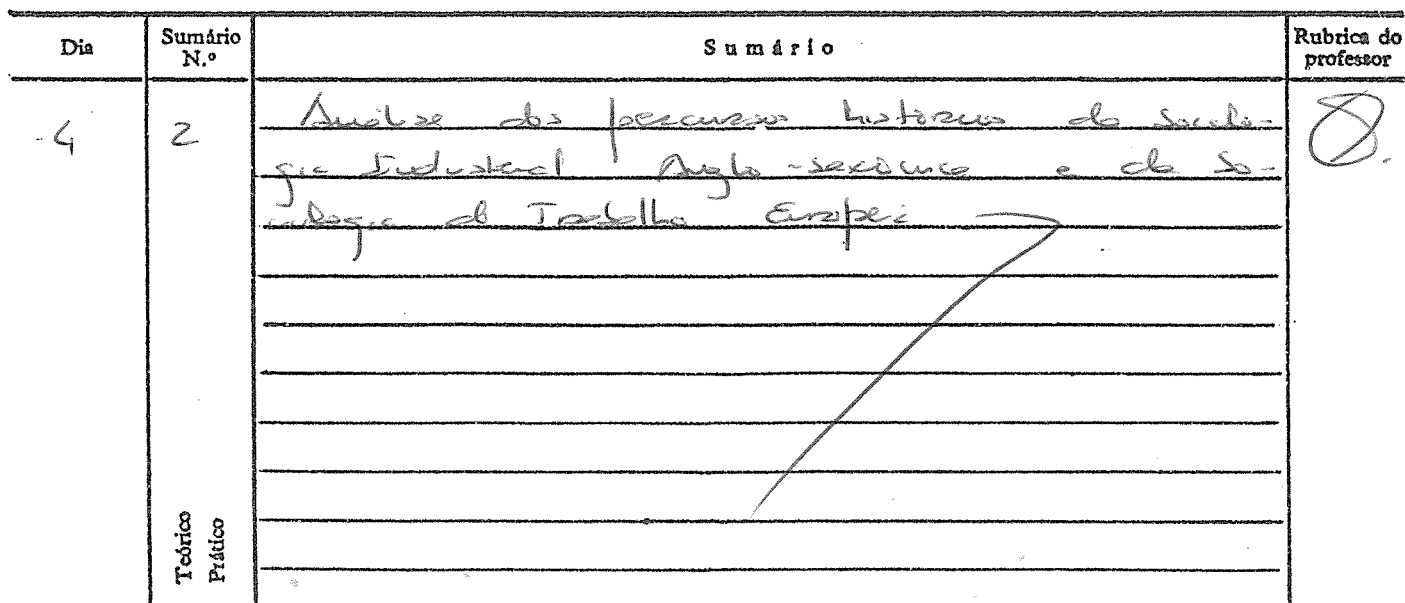 Dia
Sumário N.º
Sumário
Rubrica do professor
-4
2
Análise dos percursos históricos da Sociolo-
gia Industrial Anglo-saxónica e da So-
ciologia do Trabalho Europeia
Teórico
Prático